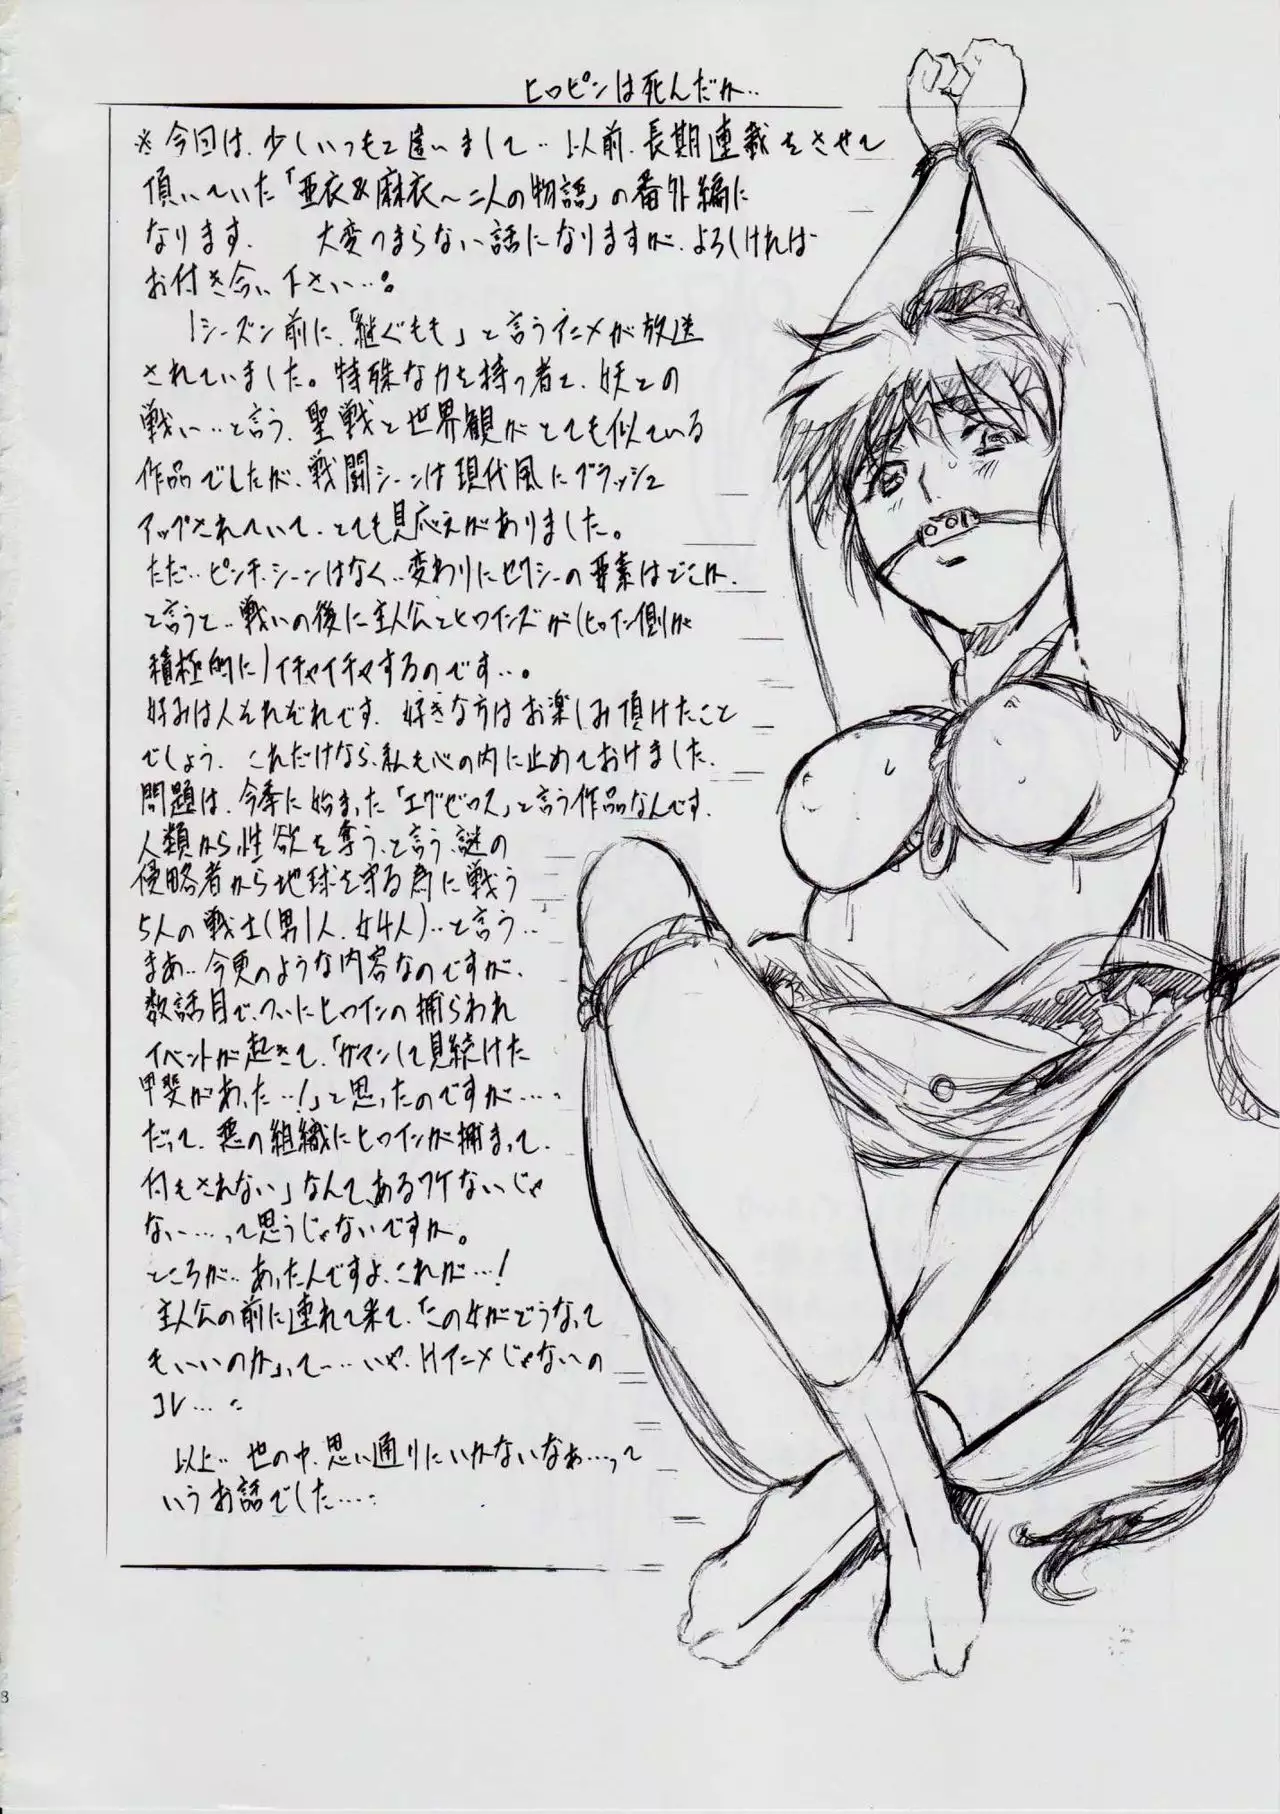 ヒロピンは死んだか‥
※今回は、少しいつもと違いまして‥以前、長期連載をさせて
頂いていた「亜衣&麻衣～二人の物語」の番外編に
なります。 大変つまらない話になりますが、よろしければ
お付き合い下さい‥。
1シーズン前に、「継ぐもも」と言うアニメが放送
されていました。特殊な力を持つ者と、妖との
戦い‥と言う、聖戦と世界観がとても似ている
作品でしたが、戦闘シーンは現代風にブラッシュ
アップされていて、とても見応えがありました。
ただ‥ピンチシーンはなく‥変わりにセクシーの要素はどこか、
と言うと‥戦いの後に主人公とヒロインズが(ヒロイン側が
積極的に)イチャイチャするのです‥。
好みは人それぞれです。好きな方はお楽しみ頂けたこと
でしょう。これだけなら、私も心の内に止めておけました。
問題は、今季に始まった「エグゼロス」と言う作品なんです。
人類から性欲を奪う、と言う、謎の
侵略者から地球を守る為に戦う
5人の戦士(男1人、女4人)‥と言う‥
まあ‥今更のような内容なのですが、
数話目で、ついにヒロインの捕らわれ
イベントが起きて、「ガマンして見続けた
甲斐があった‥!」と思ったのですが‥‥
だって、悪の組織にヒロインが捕まって、
何もされない」なんて、あるワケないじゃ
ない‥‥って思うじゃないですか。
ところが‥あったんですよ、これが‥!
主人公の前に連れて来て、「この女がどうなって
もいいのか」って‥‥いや、Hアニメじゃないの
コレ‥‥
以上‥世の中、思い通りにいかないなぁ‥‥って
いうお話でした‥‥
8